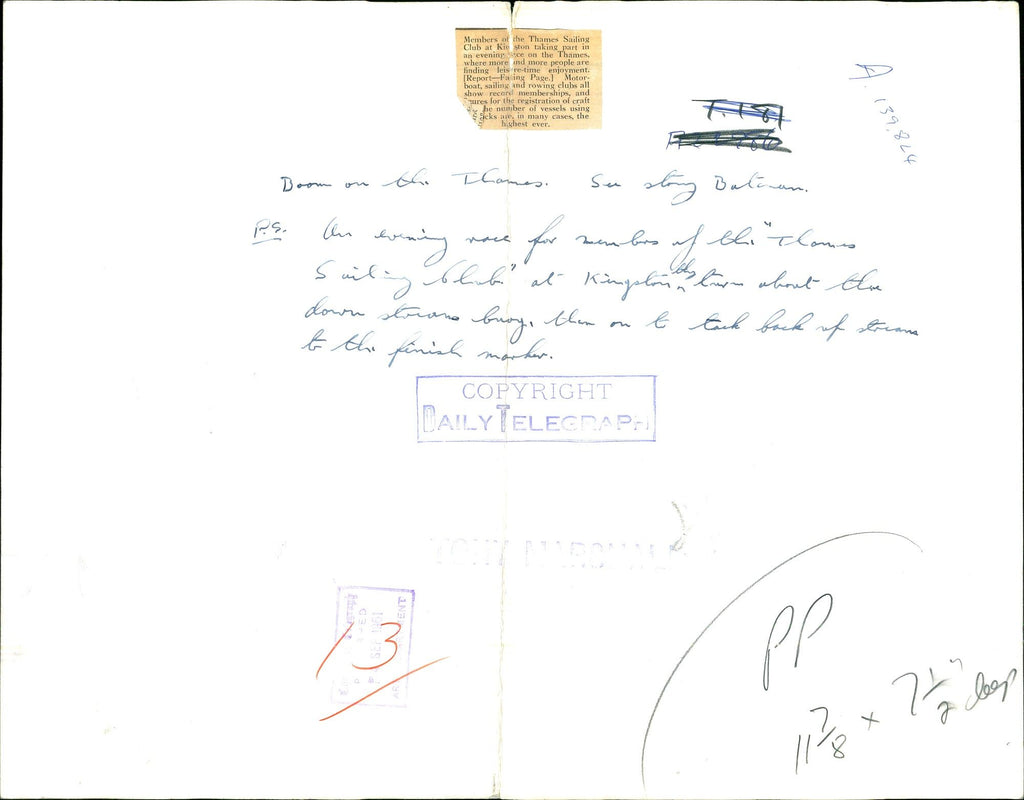 Members of the Thames Sailing
Club at Kingston taking part in
an evening race on the Thames,
where more and more people are
finding leisure-time enjoyment.
[Report—Facing Page.] Motor-
boat, sailing and rowing clubs all
show record memberships, and
gures for the registration of craft
he number of vessels using
cks are, in many cases, the
highest ever.
D. 139,824
T.181
Boom on the Thames. See story Bateman.
P.S. An evening race for members of the "Thames
Sailing Club" at Kingston, they turn about the
down stream buoy, then on to tack back up stream
to the finish marker.
COPYRIGHT
DAILY TELEGRAPH
TONY MARSHALL
13
SEP 1961
PP
11 7/8 x 7 1/2" deep